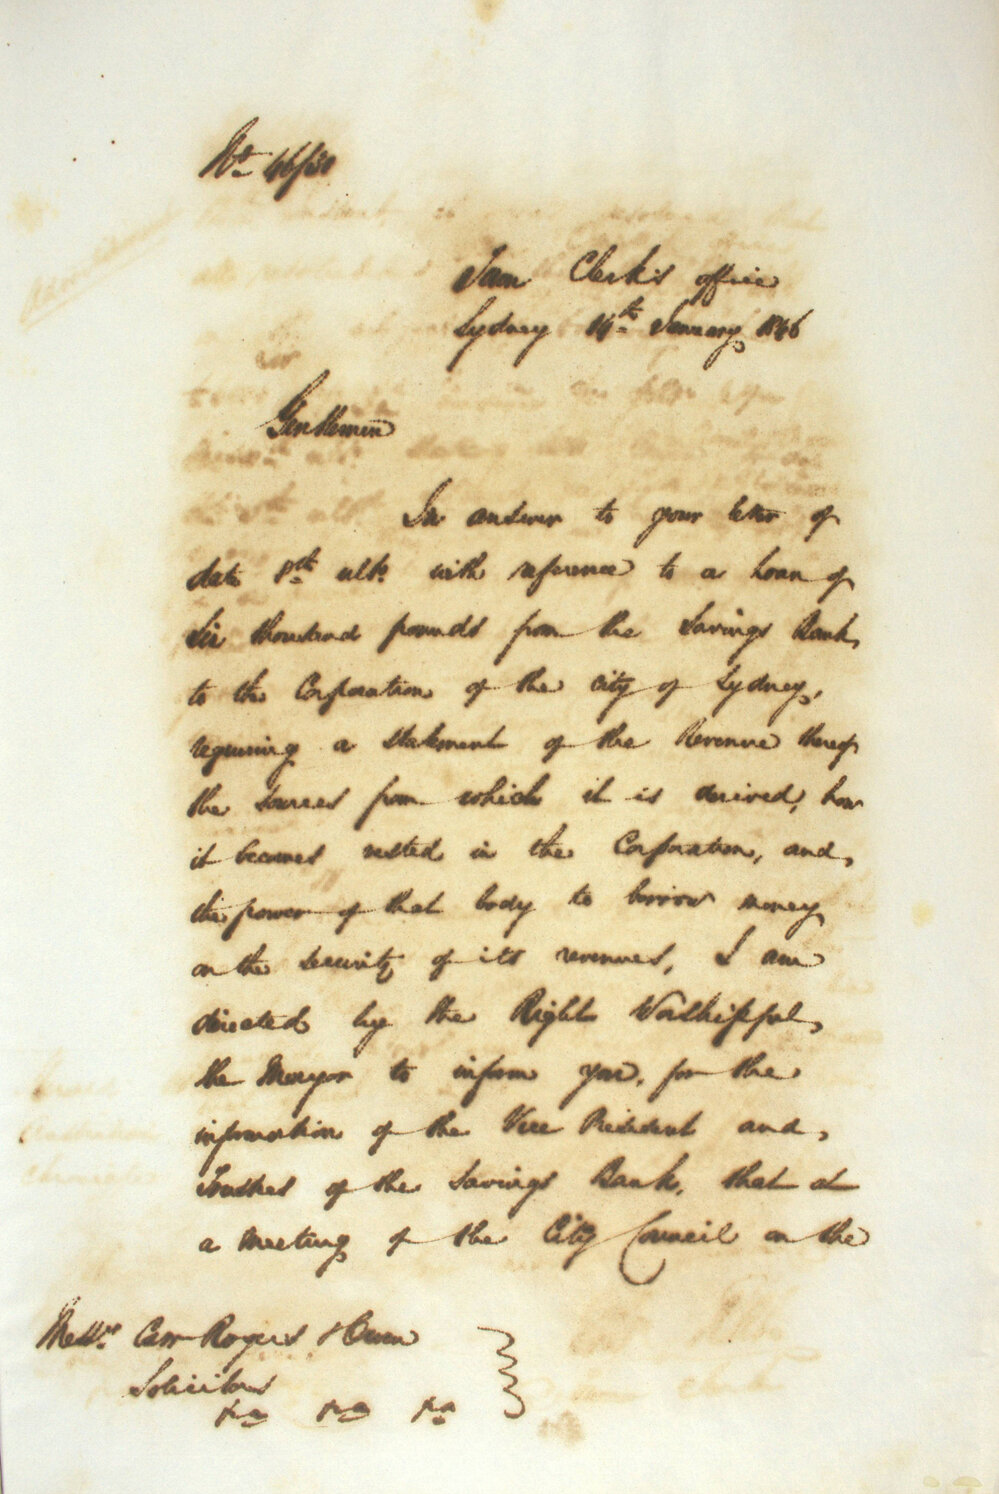 No. 46/30
Town Clerk's office
Sydney 14th January 1846
Gentlemen
In answer to your letter of
date 8th ulto. with reference to a loan of
Six thousand pounds from the Savings Bank,
to the Corporation of the city of Sydney,
requiring a statement of the Revenue thereof
the sources from which it is derived, how
it becomes vested in the Corporation, and,
the power of that body to borrow money
on the security of its revenues, I am
directed by the Right Worshipful,
the Mayor to inform you, for the
information of the Vice President and,
Trustees of the Savings Bank, that at
a meeting of the City Council on the
Messrs. Carr Rogers & Owen
Solicitors